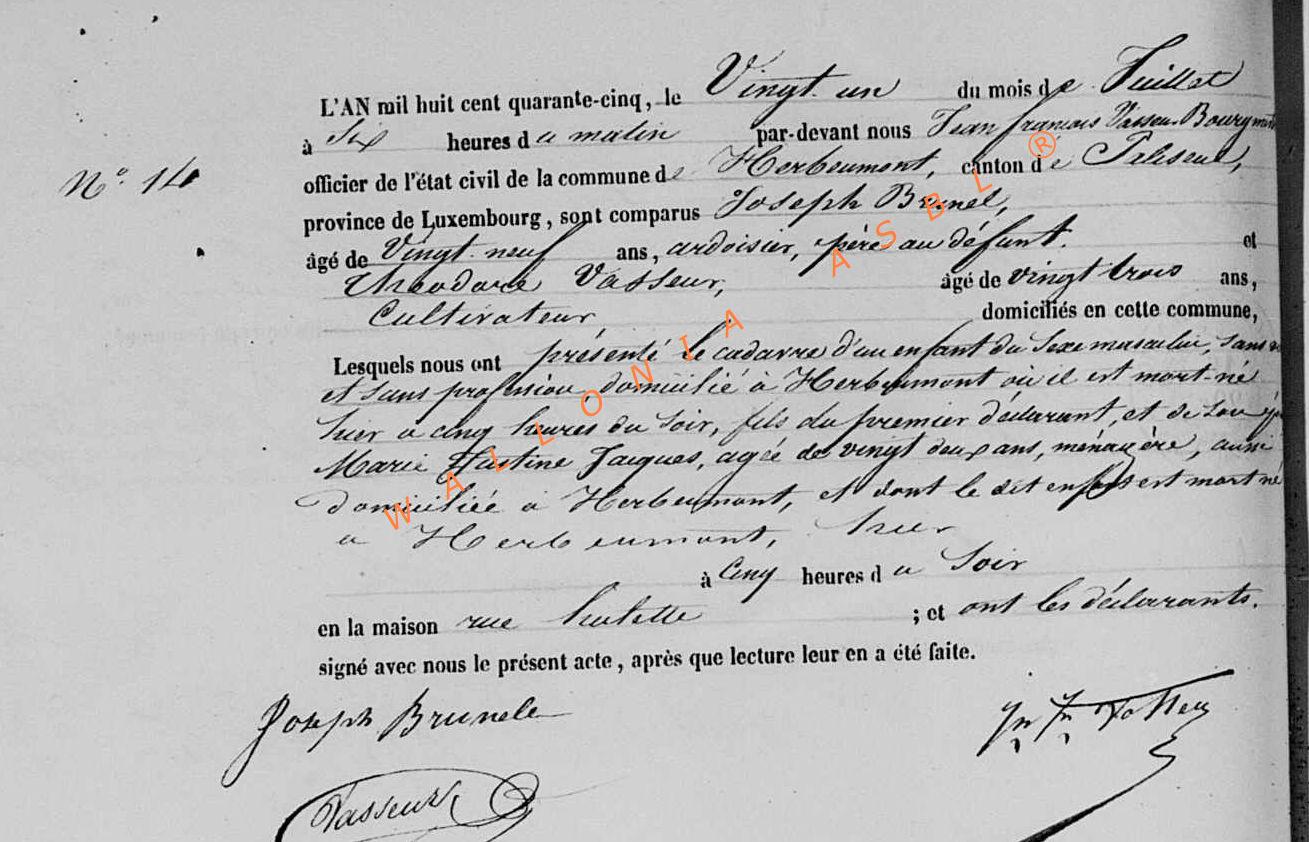 L'AN mil huit cent quarante-cinq, le Vingt un du mois de Juillet
à Six heures du matin par-devant nous Jean françois Vasseur Bourgm
officier de l'état civil de la commune de Herbeumont, canton de Paliseul,
N° 14
province de Luxembourg, sont comparus Joseph Brunel,
âgé de Vingt neuf ans, ardoisier, père au défunt. et
Théodore Vasseur, âgé de vingt trois ans,
Cultivateur, domiciliés en cette commune,
Lesquels nous ont présenté le cadavre d'un enfant du Sexe masculin, sans
et sans profession, domicilié à Herbeumont où il est mort-né
hier à cinq heures du soir, fils du premier déclarant, et de son
Marie Jacques, agée de vingt deux ans, ménagère, aussi
domiciliée à Herbeumont, et dont le dit enfant est mort né
a Herbeumont, hier
à Cinq heures du Soir
en la maison rue ; et ont les déclarants.
signé avec nous le présent acte, après que lecture leur en a été faite.
Joseph Brunel
Jn Fr Vasseur
Vasseur
WALLONIA ASBL ®